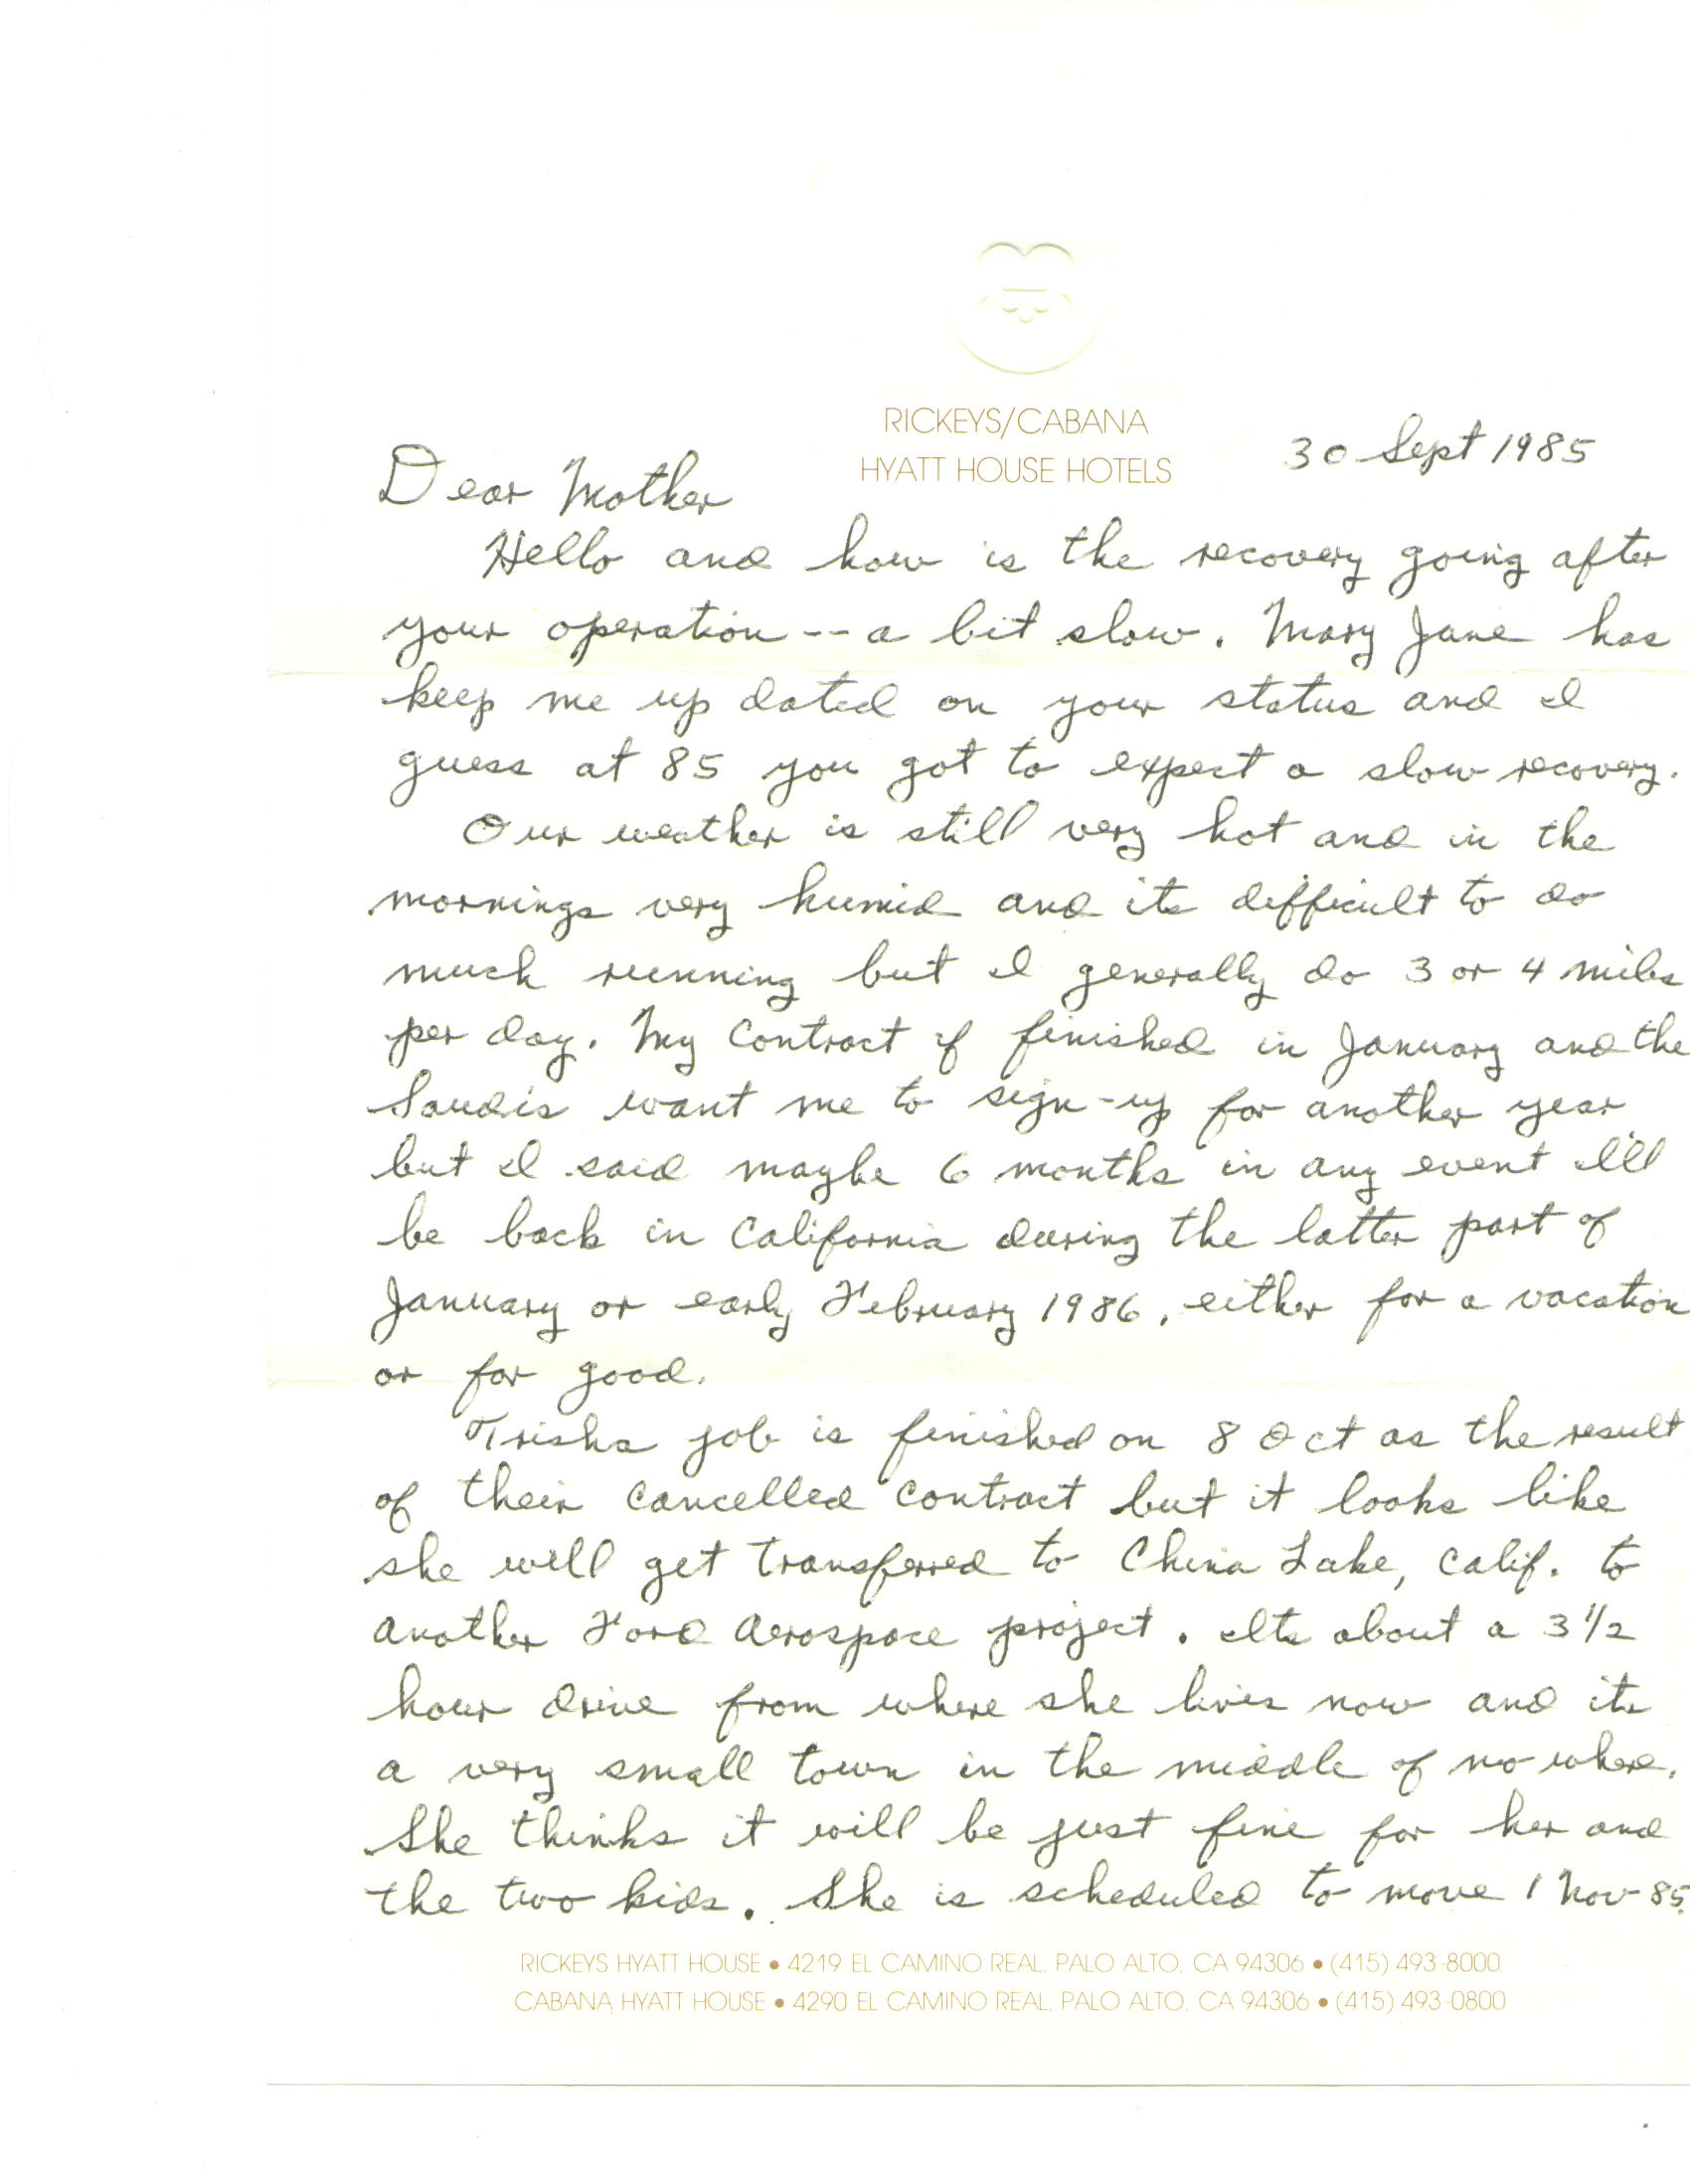 RICKEYS/CABANA
HYATT HOUSE HOTELS
30 Sept 1985
Dear Mother
Hello and how is the recovery going after
your operation -- a bit slow. Mary Jane has
keep me up dated on your status and I
guess at 85 you got to expect a slow recovery.
Our weather is still very hot and in the
mornings very humid and its difficult to do
much running but I generally do 3 or 4 miles
per day. My contract if finished in January and the
Saudis want me to sign-up for another year
but I said maybe 6 months in any event I'll
be back in California during the latter part of
January or early February 1986, either for a vacation
or for good.
Trisha job is finished on 8 Oct as the result
of their cancelled contract but it looks like
she will get transferred to China Lake, Calif. to
another Ford Aerospace project. Its about a 3 1/2
hour drive from where she lives now and its
a very small town in the middle of no where.
She thinks it will be just fine for her and
the two kids. She is scheduled to move 1 Nov 85.
RICKEYS HYATT HOUSE • 4219 EL CAMINO REAL, PALO ALTO, CA 94306 • (415) 493-8000
CABANA HYATT HOUSE • 4290 EL CAMINO REAL, PALO ALTO, CA 94306 • (415) 493-0800